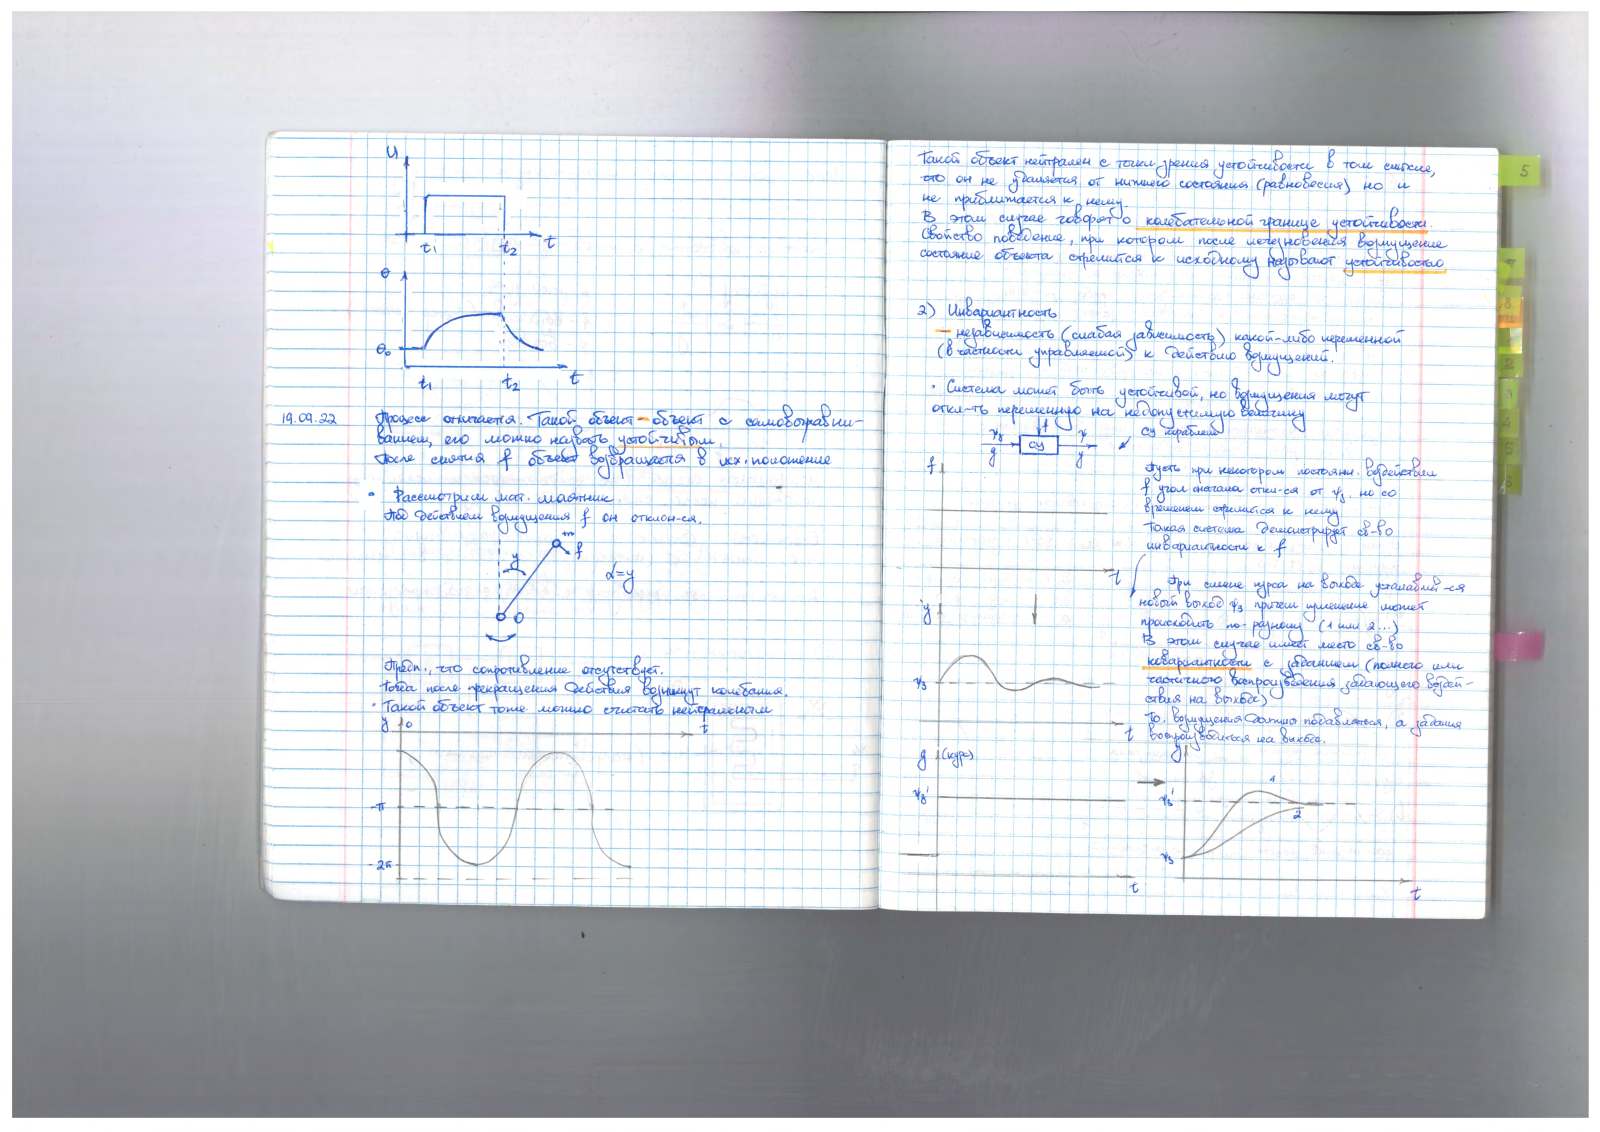 U
t₁ t₂ t
θ
θ₀
t₁ t₂ t
19.09.22
Процесс отличается. Такой объект - объект с самовыравни-
ванием, его можно назвать устойчивым.
После снятия f объект возвращается в исх. положение
• Рассмотрим мат. маятник.
Под действием возмущения f он отклон-ся.
m
f
y
α=y
0
Предп., что сопротивление отсутствует.
Тогда после прекращения действия возникнут колебания.
• Такой объект тоже можно считать нейтральным
y 0 t
-π
-2π
Такой объект нейтрален с точки зрения устойчивости в том смысле,
что он не удаляется от нижнего состояния (равновесия) но и
не приближается к нему.
В этом случае говорят о колебательной границе устойчивости.
Свойство поведение, при котором после исчезновения возмущение
состояние объекта стремится к исходному называют устойчивостью
2) Инвариантность
- независимость (слабая зависимость) какой-либо переменной
(в частности управляемой) к действию возмущений.
• Система может быть устойчивой, но возмущения могут
откл-ть переменную на недопустимую величину
ψ₃ f ψ
g СУ y
СУ кораблём
f
t
Пусть при некотором постоянн. воздействии
f угол сначала откл-ся от ψ₃, но со
временем стремится к нему
Такая система демонстрирует св-во
инвариантности к f
При смене курса на выходе устанавлив-ся
новый выход ψ₃ причем изменение может
происходить по-разному (1 или 2...)
В этом случае имеет место св-во
ковариантности с заданием (полного или
частичного воспроизведения задающего воздей-
ствия на выходе)
То, возмущения должны подавляться, а задания
воспроизводиться на выходе.
y
ψ₃
t
g (курс)
ψ₃'
t
y
ψ₃'
1
2
ψ₃
t
5